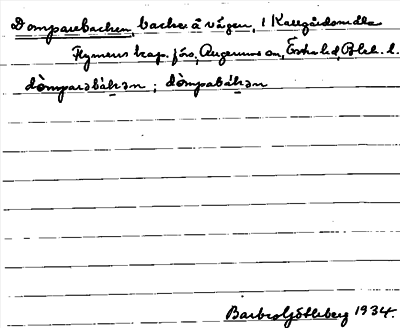 Domparebacken, backe å vägen, i Kallgårdsmåla
Flymens kap. förs, Augerums sn, Östra hd, Blek. l.
dòmparabàkən ; dòmpabàkən
Barbro Götleberg 1934.